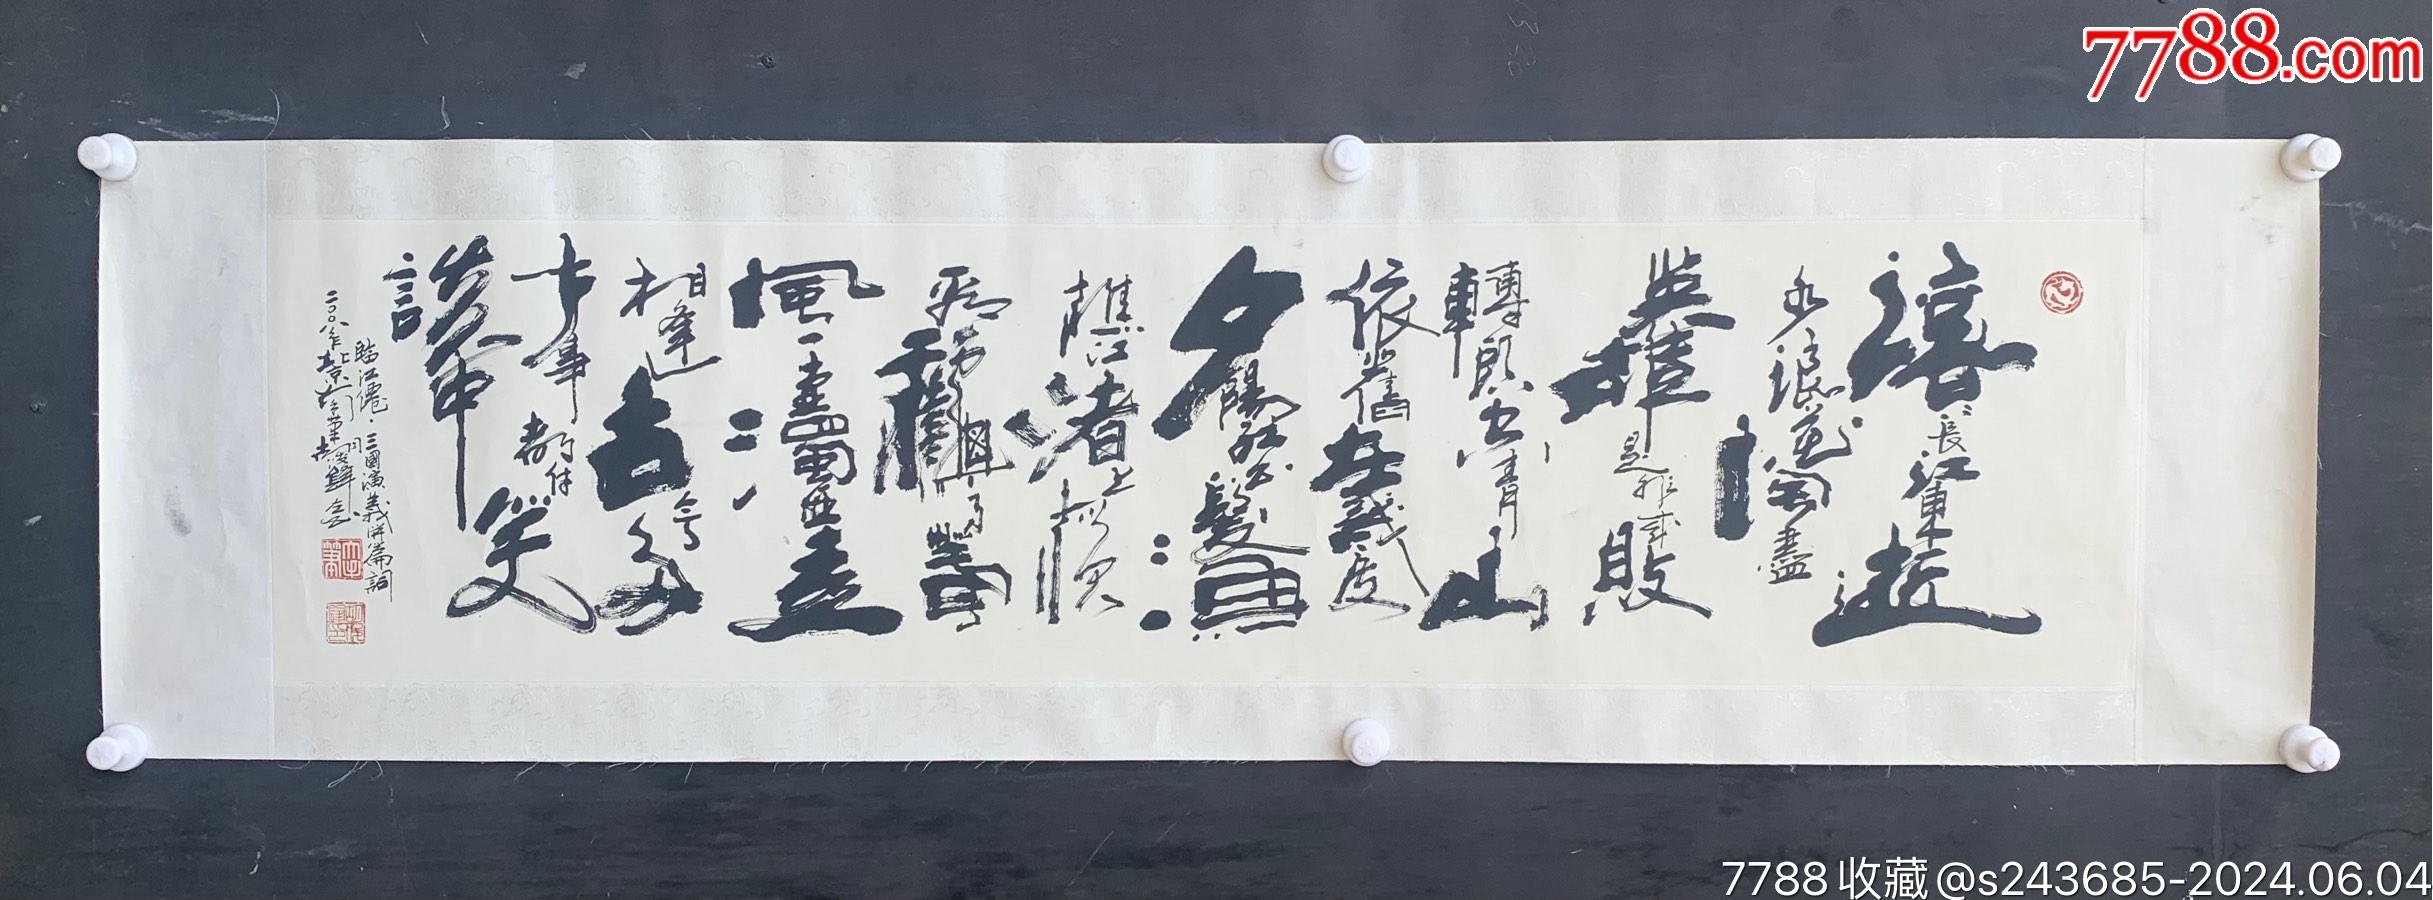 滾〻長江東逝
水浪花淘盡
英雄是非成敗
轉頭空青山
依舊在幾度
夕陽紅白髮漁
樵江渚上慣
看秋月春
風一壺濁酒喜
相逢古今多
少事都付
談笑中
臨江仙·三國演義開篇詞
二〇〇八年北京
7788.com
7788收藏@s243685-2024.06.04